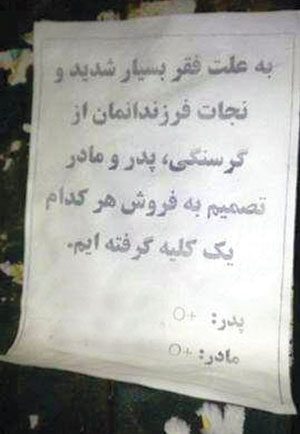 به علت فقر بسیار شدید و
نجات فرزندانمان از
گرسنگی، پدر و مادر
تصمیم به فروش هر کدام
یک کلیه گرفته ایم.
پدر: O+
مادر: O+